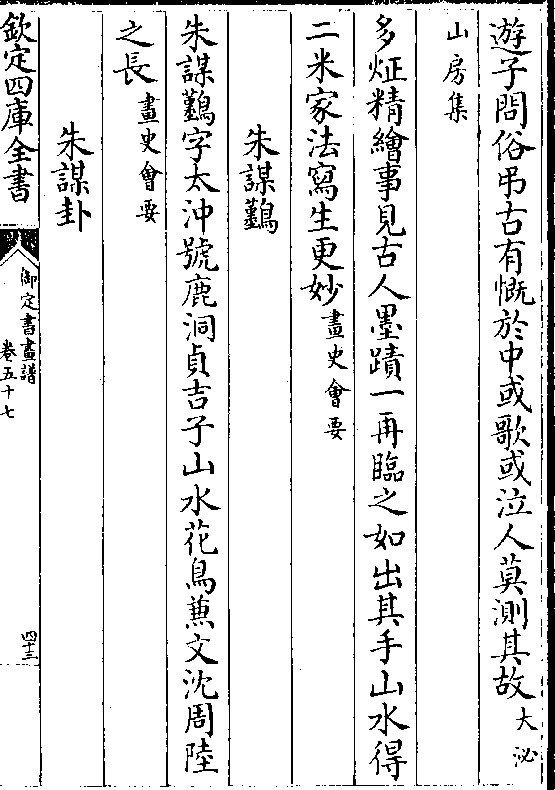 遊子問俗弔古有慨於中或歌或泣人莫測其故大泌
山房集
多炡精繪事見古人墨蹟一再臨之如出其手山水得
二米家法寫生更妙畫史會要
朱謀鸛
朱謀鸛字太沖號鹿洞貞吉子山水花鳥兼文沈周陸
之長畫史會要
朱謀卦
欽定四庫全書
御定書畫譜
卷五十七
四十三